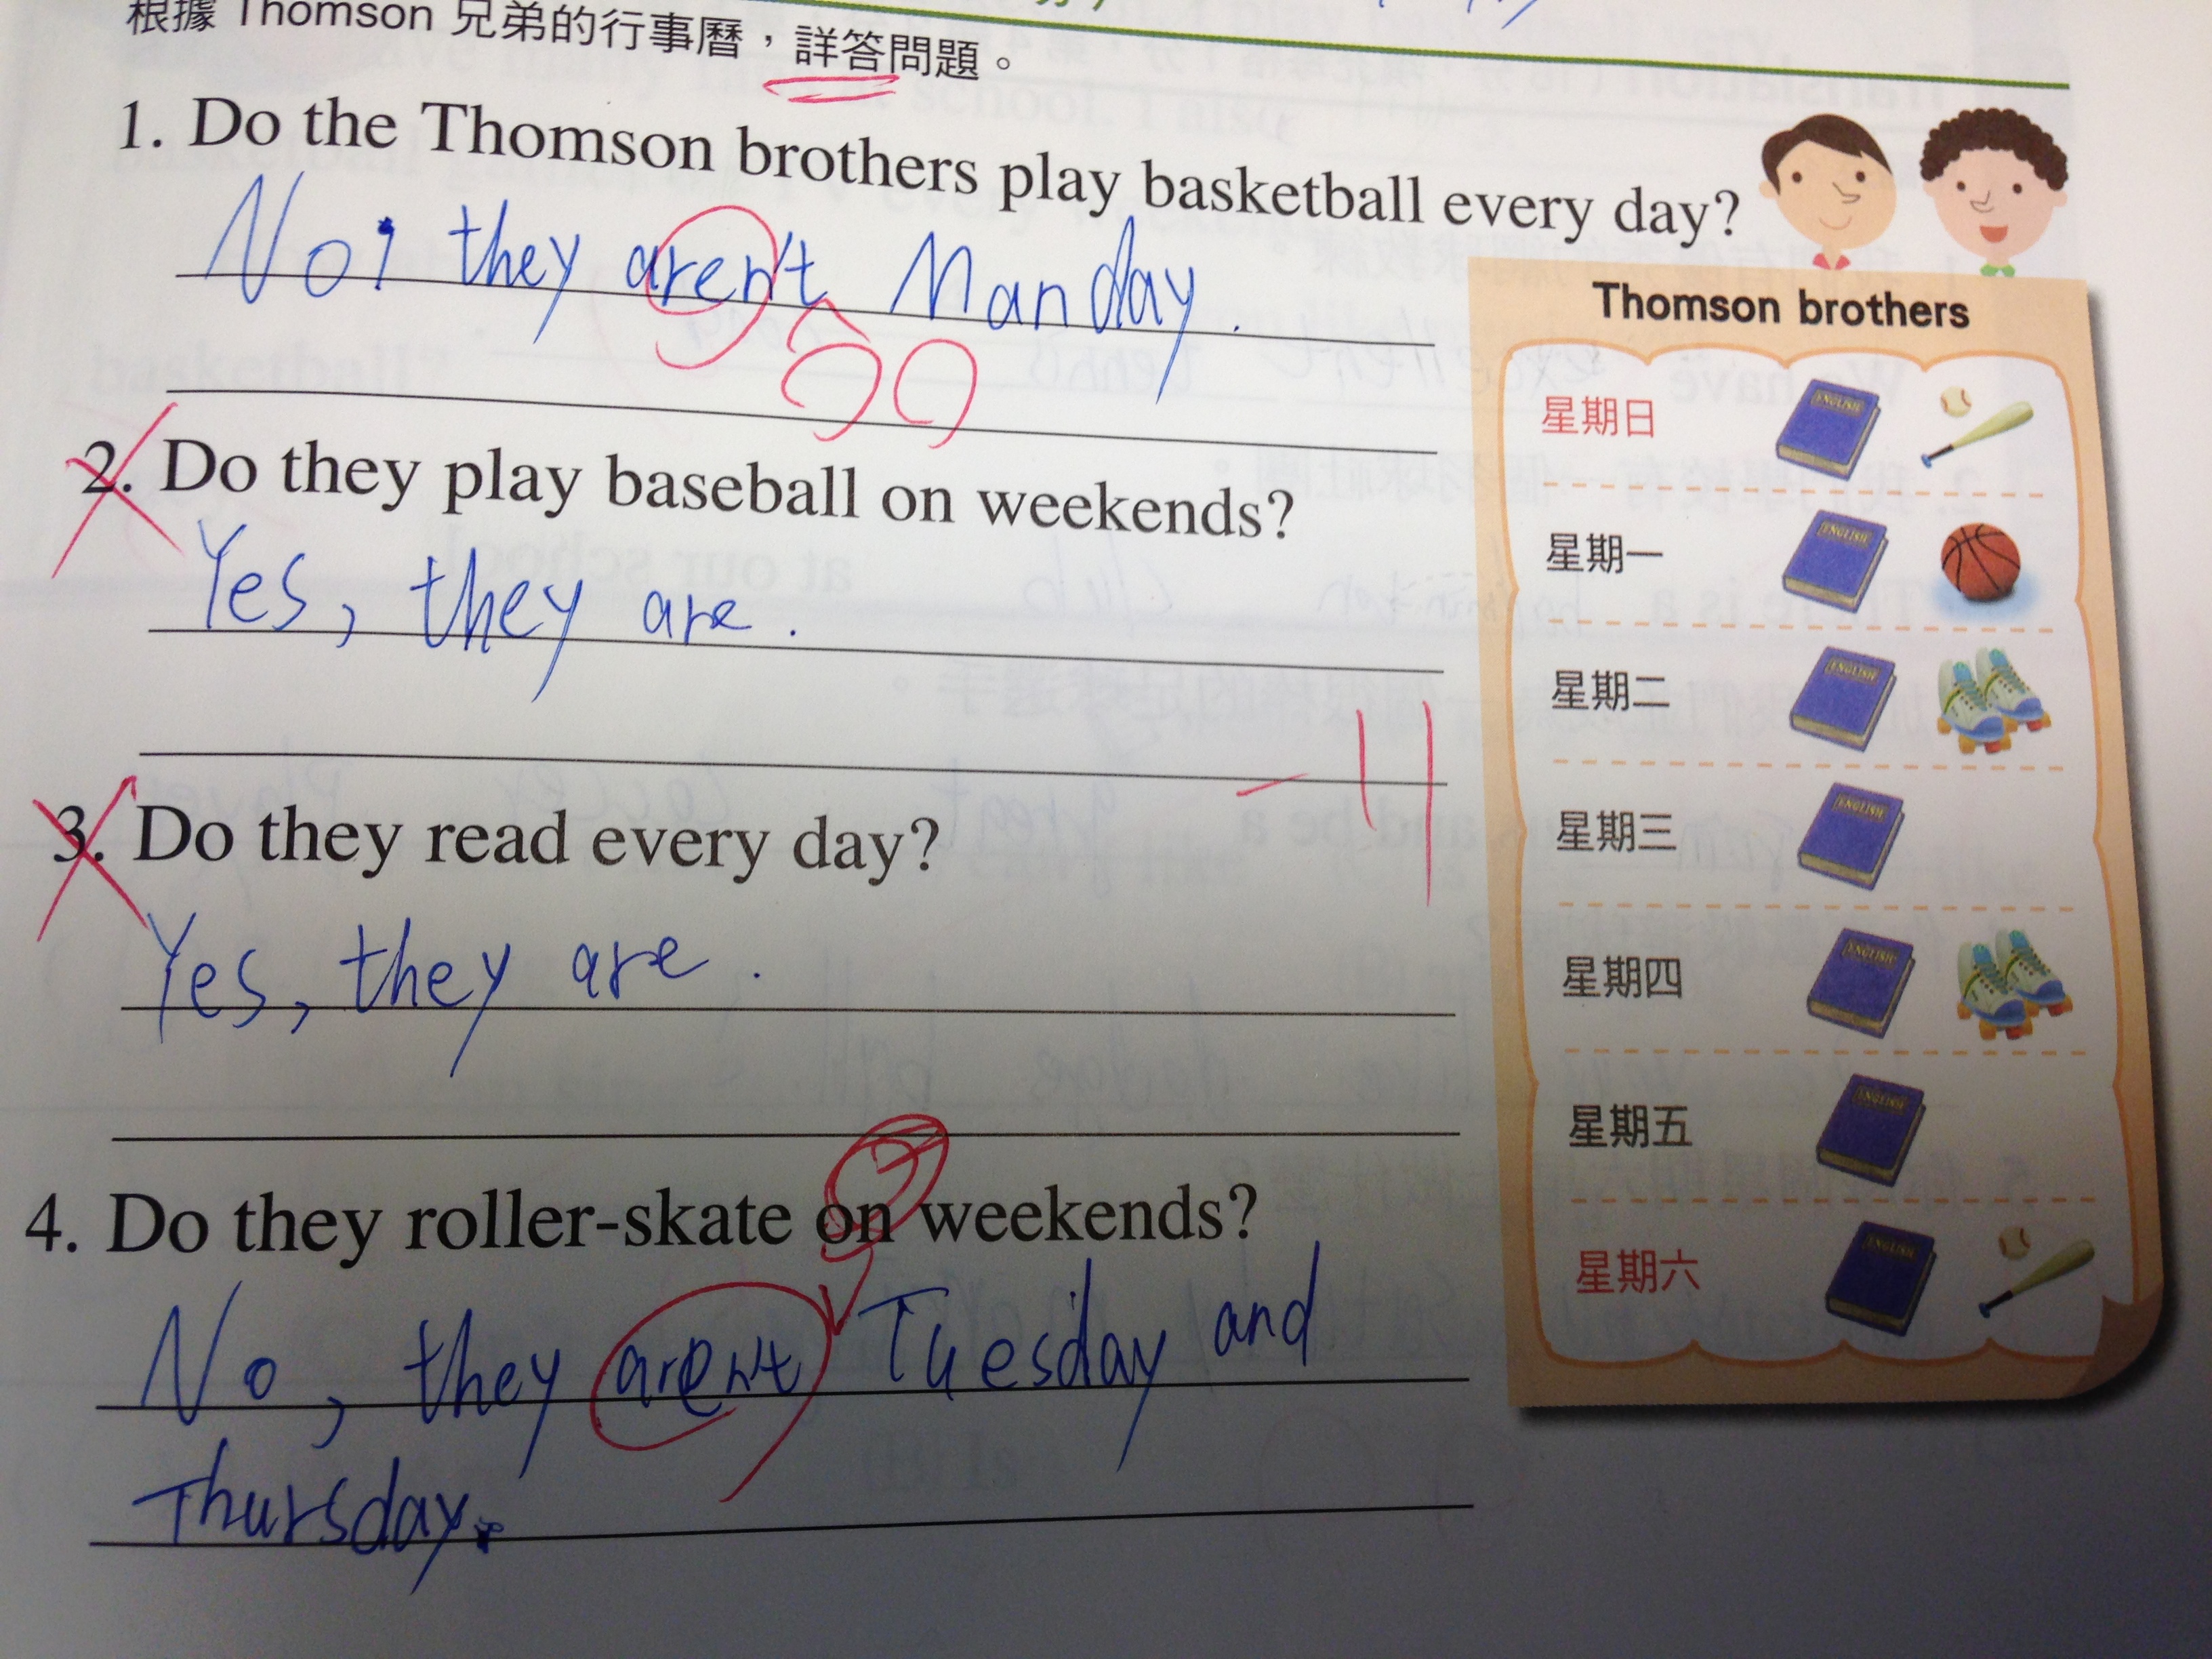 根據 Thomson 兄弟的行事曆，詳答問題。
1. Do the Thomson brothers play basketball every day?
No, they aren't Manday.
2. Do they play baseball on weekends?
Yes, they are.
3. Do they read every day?
Yes, they are.
-11
4. Do they roller-skate on weekends?
No, they aren't Tuesday and
Thursday.
Thomson brothers
星期日
ENGLISH
星期一
ENGLISH
星期二
ENGLISH
星期三
ENGLISH
星期四
ENGLISH
星期五
ENGLISH
星期六
ENGLISH